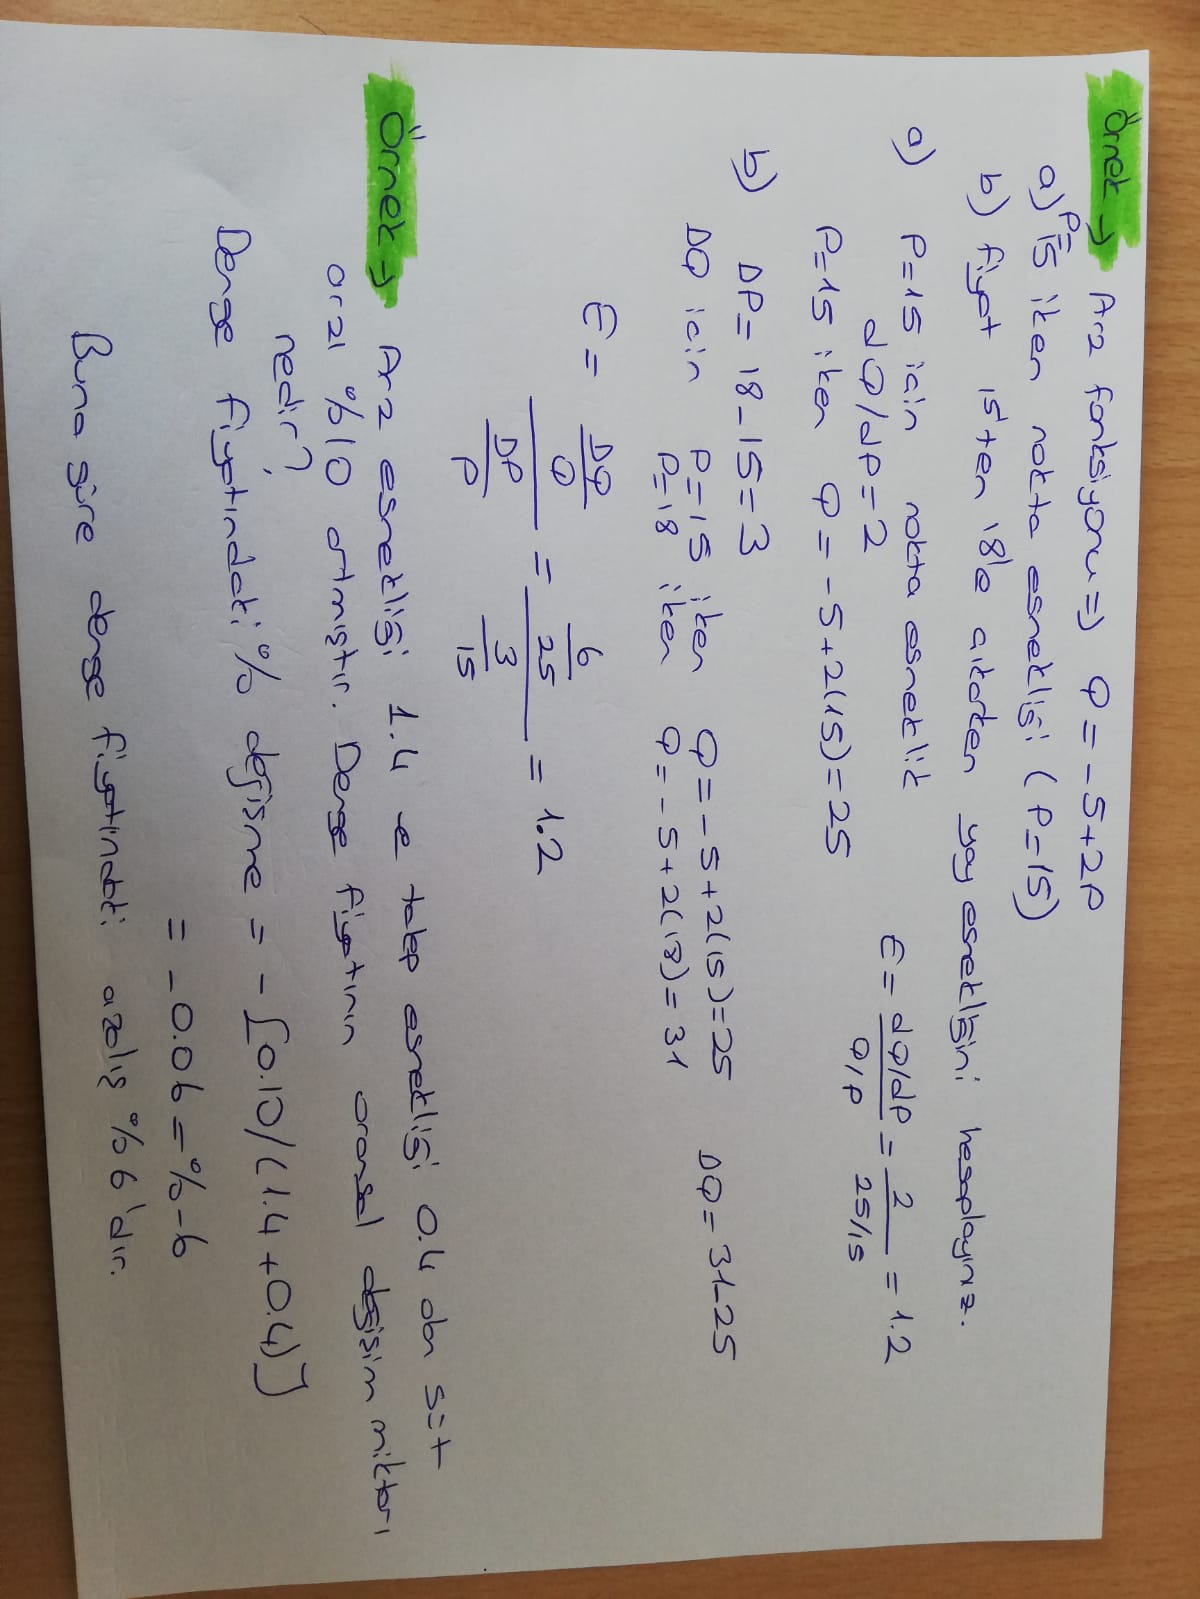 Örnek → Arz fonksiyonu => Q = -5+2P
a) P=15 iken nokta esnekliği (P=15)
b) fiyat 15'ten 18'e çıkarken yay esnekliğini hesaplayınız.
a) P=15 için nokta esneklik
dQ/dP=2
P=15 iken Q = -5+2(15)=25
E = dQ/dP / Q/P = 2 / 25/15 = 1.2
b) DP = 18-15=3
DQ için P=15 iken Q = -5+2(15)=25
P=18 iken Q = -5+2(18)=31
DQ = 31-25
E = DQ/Q / DP/P = 6/25 / 3/15 = 1.2
Örnek → Arz esnekliği 1.4 e talep esnekliği 0.4 olan süt
arzı %10 artmıştır. Denge fiyatının oransal değişim miktarı
nedir?
Denge fiyatındaki % değişme = -[0.10/(1.4+0.4)]
= -0.06 = %-6
Buna göre denge fiyatındaki azalış %6'dır.